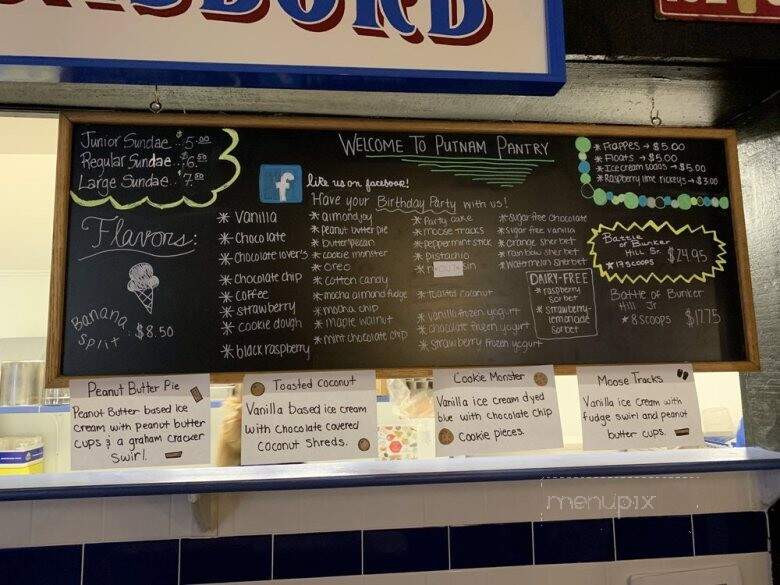 WELCOME TO PUTNAM PANTRY
Junior Sundae .. $5.00
Regular Sundae .. $6.50
Large Sundae .. $7.50
like us on facebook!
Have your Birthday Party with us!
Flavors:
* Vanilla
* Chocolate
* Chocolate lover's
* Chocolate chip
* Coffee
* strawberry
* cookie dough
* black raspberry
* almond joy
* peanut butter pie
* butter pecan
* cookie monster
* oreo
* cotton candy
* mocha almond fudge
* mocha chip
* maple walnut
* mint chocolate chip
* Party cake
* moose tracks
* peppermint stick
* pistachio
* toasted coconut
* vanilla frozen yogurt
* chocolate frozen yogurt
* strawberry frozen yogurt
* sugar free chocolate
* sugar free vanilla
* orange sherbet
* rainbow sherbet
* watermelon sherbet
DAIRY-FREE
* raspberry
sorbet
* strawberry-
lemonade
sorbet
Banana
Split : $8.50
* Frappes → $5.00
* Floats → $5.00
* Icecream sodas → $5.00
* Raspberry lime rickeys → $3.00
Battle
of Bunker
Hill Sr.
* 17 scoops
$24.95
Battle of Bunker
Hill Jr
* 8 scoops $17.75
Peanut Butter Pie
Peanut Butter based Ice
cream with peanut butter
cups & a graham cracker
swirl.
Toasted coconut
Vanilla based ice cream
with chocolate covered
coconut shreds.
Cookie Monster
Vanilla ice cream dyed
blue with chocolate chip
cookie pieces.
Moose Tracks
Vanilla ice cream with
fudge swirl and peanut
butter cups.
menupix